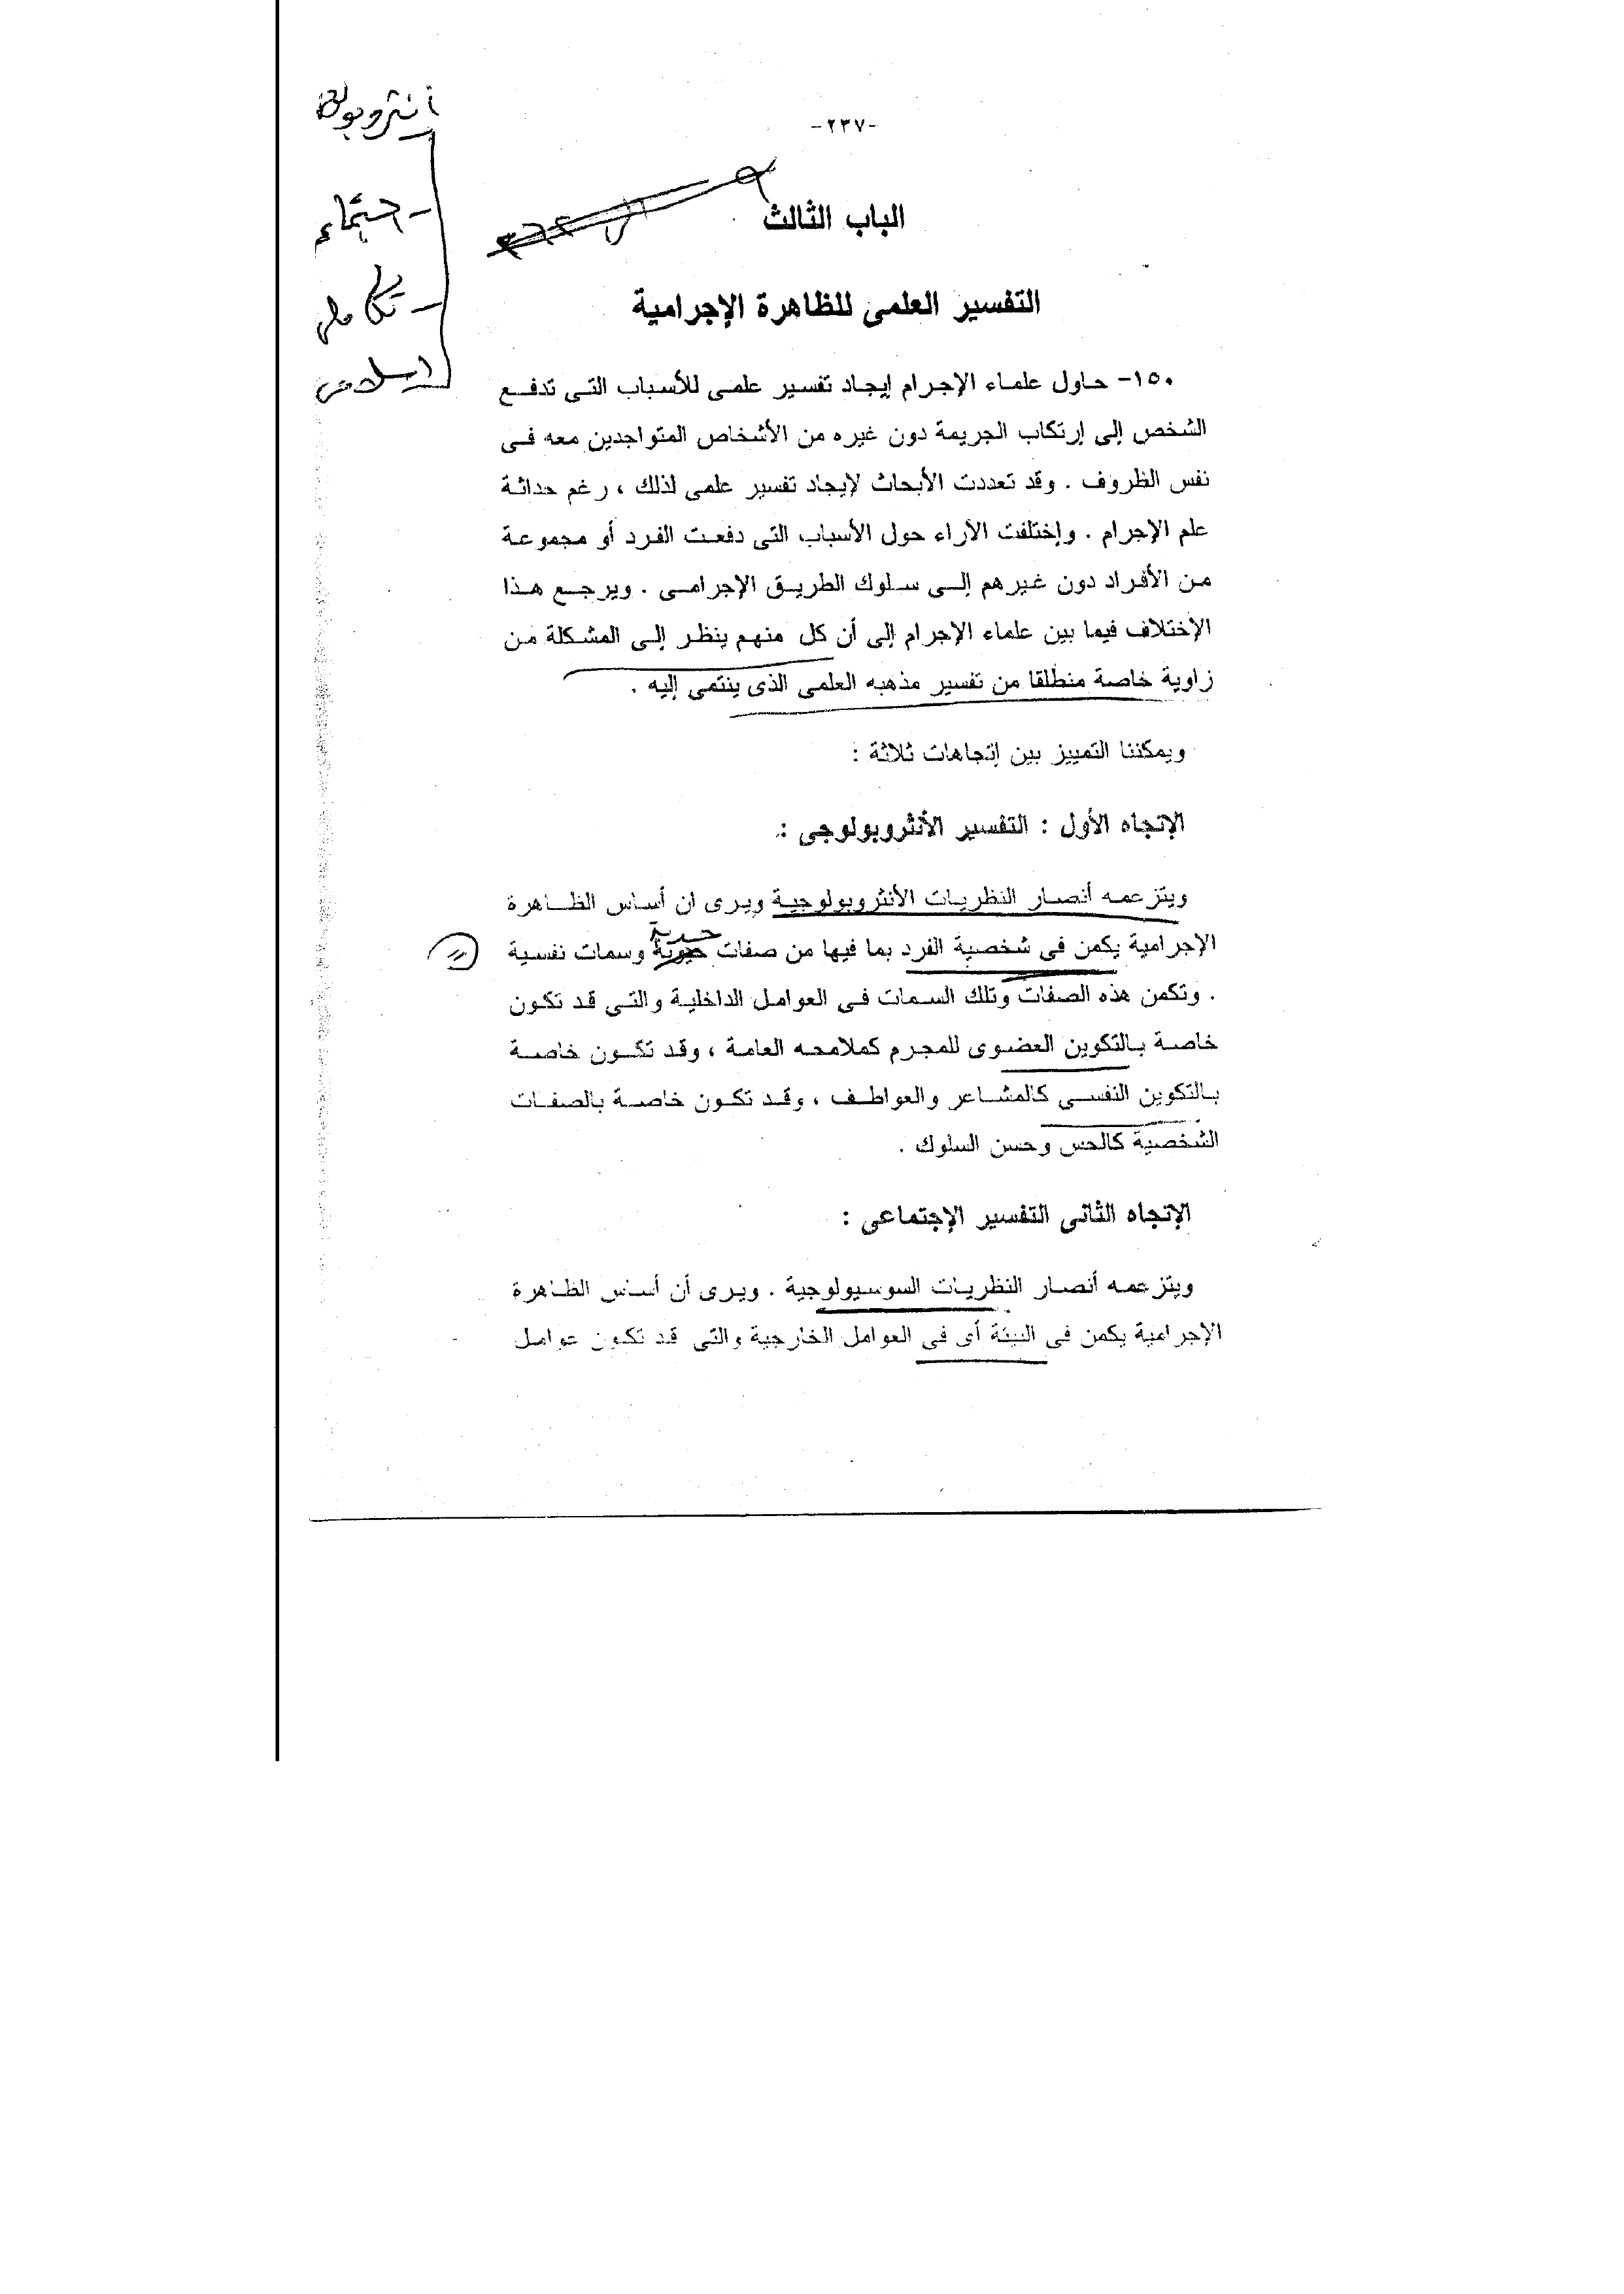 -٢٣٧-
الباب الثالث
التفسير العلمى للظاهرة الإجرامية
١٥٠- حاول علماء الإجرام إيجاد تفسير علمى للأسباب التى تدفع
الشخص إلى إرتكاب الجريمة دون غيره من الأشخاص المتواجدين معه فى
نفس الظروف . وقد تعددت الأبحاث لإيجاد تفسير علمى لذلك ، رغم حداثة
علم الإجرام . وإختلفت الأراء حول الأسباب التى دفعت الفرد أو مجموعة
من الأفراد دون غيرهم إلى سلوك الطريق الإجرامى . ويرجع هذا
الإختلاف فيما بين علماء الإجرام إلى أن كل منهم ينظر إلى المشكلة من
زاوية خاصة منطلقا من تفسير مذهبه العلمى الذى ينتمى إليه .
ويمكننا التمييز بين إتجاهات ثلاثة :
الإتجاه الأول : التفسير الأنثروبولوجى :
ويتزعمه أنصار النظريات الأنثروبولوجية ويرى ان أساس الظاهرة
الإجرامية يكمن فى شخصية الفرد بما فيها من صفات وسمات نفسية
. وتكمن هذه الصفات وتلك السمات فى العوامل الداخلية والتى قد تكون
خاصة بالتكوين العضوى للمجرم كملامحه العامة ، وقد تكون خاصة
بالتكوين النفسى كالمشاعر والعواطف ، وقد تكون خاصة بالصفات
الشخصية كالحس وحسن السلوك .
الإتجاه الثانى التفسير الإجتماعى :
ويتزعمه أنصار النظريات السوسيولوجية . ويرى أن أساس الظاهرة
الإجرامية يكمن فى البيئة أى فى العوامل الخارجية والتى قد تكون عوامل